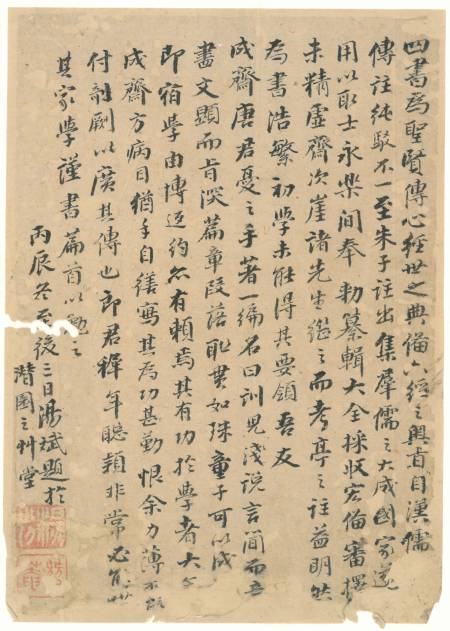 四書為聖賢傳心經世之典備六經之奧旨自漢儒
傳註純駁不一至朱子註出集羣儒之大成國家遂
用以取士永樂間奉勅纂輯大全採收宏備審擇
未精虛齋次崖諸先生繼之而考亭之註益明然
為書浩繁初學未能得其要領吾友
成齋唐君憂之手著一編名曰訓兒淺說言簡而
盡文顯而旨深篇章段落聯貫如珠童子可以成
即宿學由博返約亦有賴焉其有功於學者大
成齋方病目猶手自繕寫其為功甚勤恨余力薄不能
付剞劂以廣其傳也郎君穉年聰穎非常必能
其家學謹書篇首以勉之
丙辰冬至後三日湯斌題於
潛園之艸堂